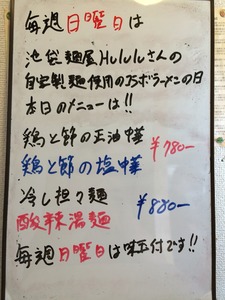 毎週日曜日は
池袋麺屋Hulu luさんの
自家製麺使用のコラボラーメンの日
本日のメニューは!!
鶏と節の正油中華
¥780-
鶏と節の塩中華
冷し担々麺
¥880-
酸辣湯麺
毎週日曜日は味玉付です!!